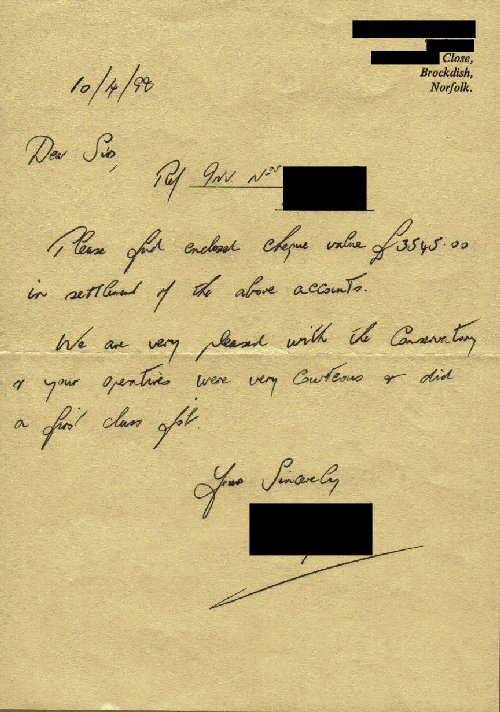 Close,
Brockdish,
Norfolk.
10/4/98
Dear Sir,
Ref Inv. Nos
Please find enclosed cheque value £3545.00
in settlement of the above accounts.
We are very pleased with the Conservatory
& your operatives were very courteous & did
a first class job.
Yours Sincerely